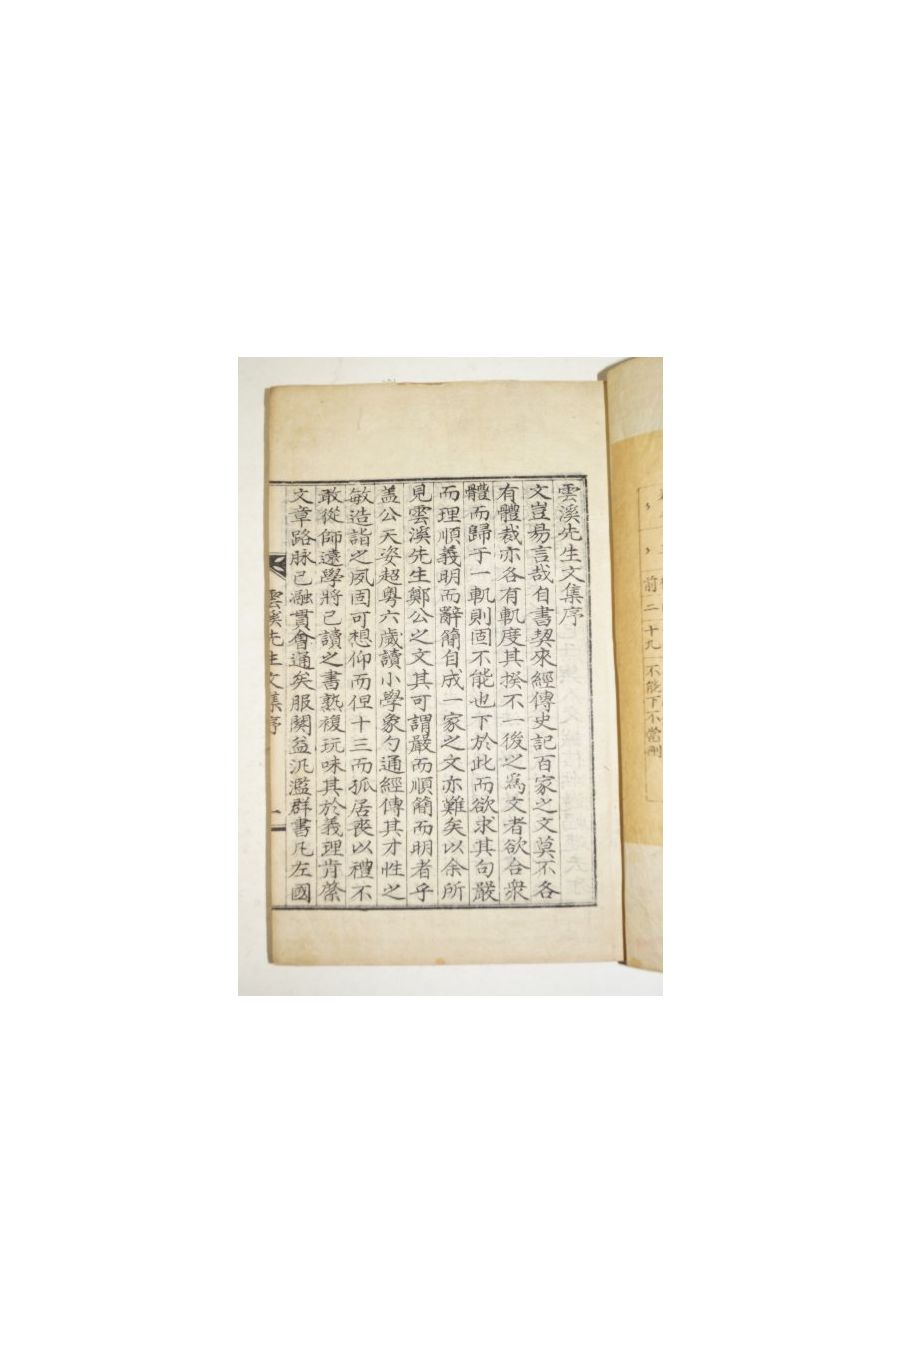 雲溪先生文集序
文豈易言哉自書契來經傳史記百家之文莫不各
有體裁亦各有軌度其揆不一後之爲文者欲合衆
體而歸于一軌則固不能也下於此而欲求其句嚴
而理順義明而辭簡自成一家之文亦難矣以余所
見雲溪先生鄭公之文其可謂嚴而順簡而明者乎
盖公天姿超粤六歲讀小學象勺通經傳其才性之
敏造詣之夙固可想仰而但十三而孤居喪以禮不
敢從師遠學將已讀之書熟複玩味其於義理肯綮
文章路脉已融貫會通矣服闋益汎濫群書凡左國
雲溪先生文集序 一
前二十九 不能下不當刪